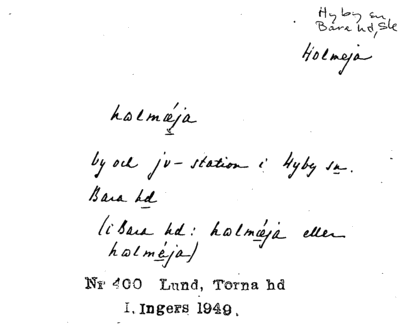 Hyby sn
Bara hd, Sk
Holmeja
halmǽja
by och jv-station i Hyby sn.
Bara hd
(i Bara hd: halmǽja eller
halmǽja)
Nr 400 Lund, Torna hd
I. Ingers 1949.